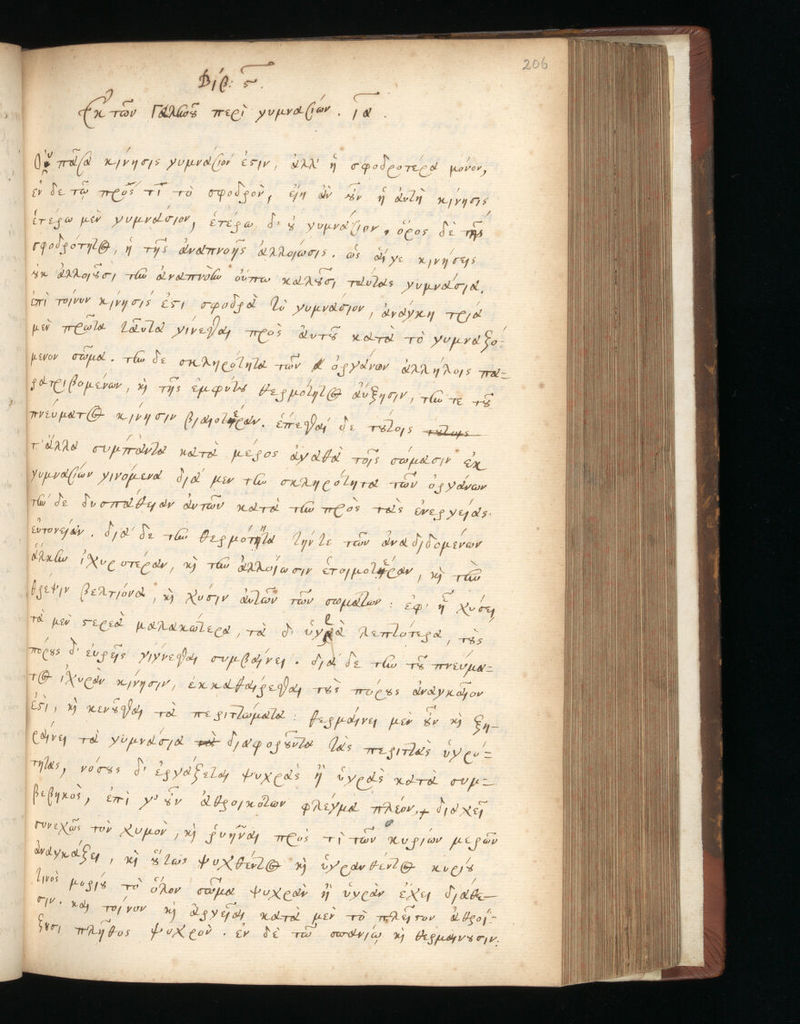 206
Βιβ: ϛ.
Ἐκ τῶν Γαληνοῦ περὶ γυμνασίων. ια.
Οὐ πᾶσα κίνησις γυμνάσιόν ἐστιν, ἀλλ' ἡ σφοδροτέρα μόνον,
ἐν δὲ τῷ πρός τι τὸ σφοδρὸν, εἴη ἂν οὖν ἡ αὐτὴ κίνησις
ἑτέρῳ μὲν γυμνάσιον, ἑτέρῳ δ' οὐ γυμνάσιον. ὅρος δὲ τῆς
σφοδρότητος, ἡ τῆς ἀναπνοῆς ἀλλοίωσις. ὡς αἵ γε κινήσεις
οὐκ ἀλλοιοῦσι τὴν ἀναπνοὴν οὔπω καλοῦσι ταύτας γυμνάσια.
ἐπὶ τοίνυν κίνησίς ἐστι σφοδρὰ τὸ γυμνάσιον, ἀνάγκη τρία
μὲν πρῶτα ταῦτα γίνεσθαι πρὸς αὐτοῦ κατὰ τὸ γυμναζό-
μενον σῶμα. τὴν δὲ σκληρότητα τῶν ὀργάνων ἀλλήλοις πα=
ρατριβομένων, κὴ τῆς ἐμφύτου θερμότητος αὔξησιν, τήν τε τοῦ
πνεύματος κίνησιν βιαιοτέραν. ἕπεσθαι δὲ τούτοις τούτοις
τ' ἄλλα συμπάντα κατὰ μέρος ἀγαθὰ τοῖς σώμασιν ἐκ
γυμνασίων γινόμενα διὰ μὲν τὴν σκληρότητα τῶν ὀργάνων
τήν δὲ δυσπάθειαν αὐτῶν κατὰ τὴν πρὸς τὰς ἐνεργείας
εὐτονείαν. διὰ δὲ τὴν θερμότητα τήν τε τῶν ἀναδιδομένων
ὁλκὴν ἰσχυροτέραν, κὴ τὴν ἀλλοίωσιν ἑτοιμοτέραν, κὴ τὴν
θρέψιν βελτίονα, κὴ χύσιν αὐτῶν τῶν σωμάτων: ἐφ' ᾗ χύσει
τὰ μὲν στερεὰ μαλακώτερα, τὰ δ' ὑγρὰ λεπτότερα, τοὺς
πόρους δ' εὐρεῖς γίγνεσθαι συμβαίνει. διὰ δὲ τὴν τοῦ πνεύμα=
τος ἰσχυρὰν κίνησιν, ἐκκαθαίρεσθαι τοὺς πόρους ἀναγκαῖον
ἐστι, κὴ κενοῦσθαι τὰ περιττώματα: θερμαίνει μὲν οὖν κὴ ξη-
ραίνει τὰ γυμνάσια τὰ διαφοροῦντα τὰς περιττὰς ὑγρό=
τητας, νόσους δ' ἐργάζεται ψυχρὰς ἢ ὑγρὰς κατὰ συμ=
βεβηκὸς, ἐπὶ γ' οὖν ἀθροικότων φλέγμα πλέον, διαχεῖ
συνεχῶς τὸν χυμὸν, κὴ ῥυῆναι πρός τι τῶν κυρίων μερῶν
ἀναγκάζει, κὴ οὕτως ψυχθέντος κὴ ὑγρανθέντος κυρίου
τινὸς μορίου τὸ ὅλον σῶμα ψυχρὰν ἢ ὑγρὰν ἔχει διάθε-
σιν. καὶ τοίνυν κὴ ἀργεῖαι κατὰ μὲν τὸ πλεῖστον ἀθροί-
ζουσι πλῆθος ψυχρόν. ἐν δὲ τῷ σπανίῳ κὴ θερμαίνουσιν: